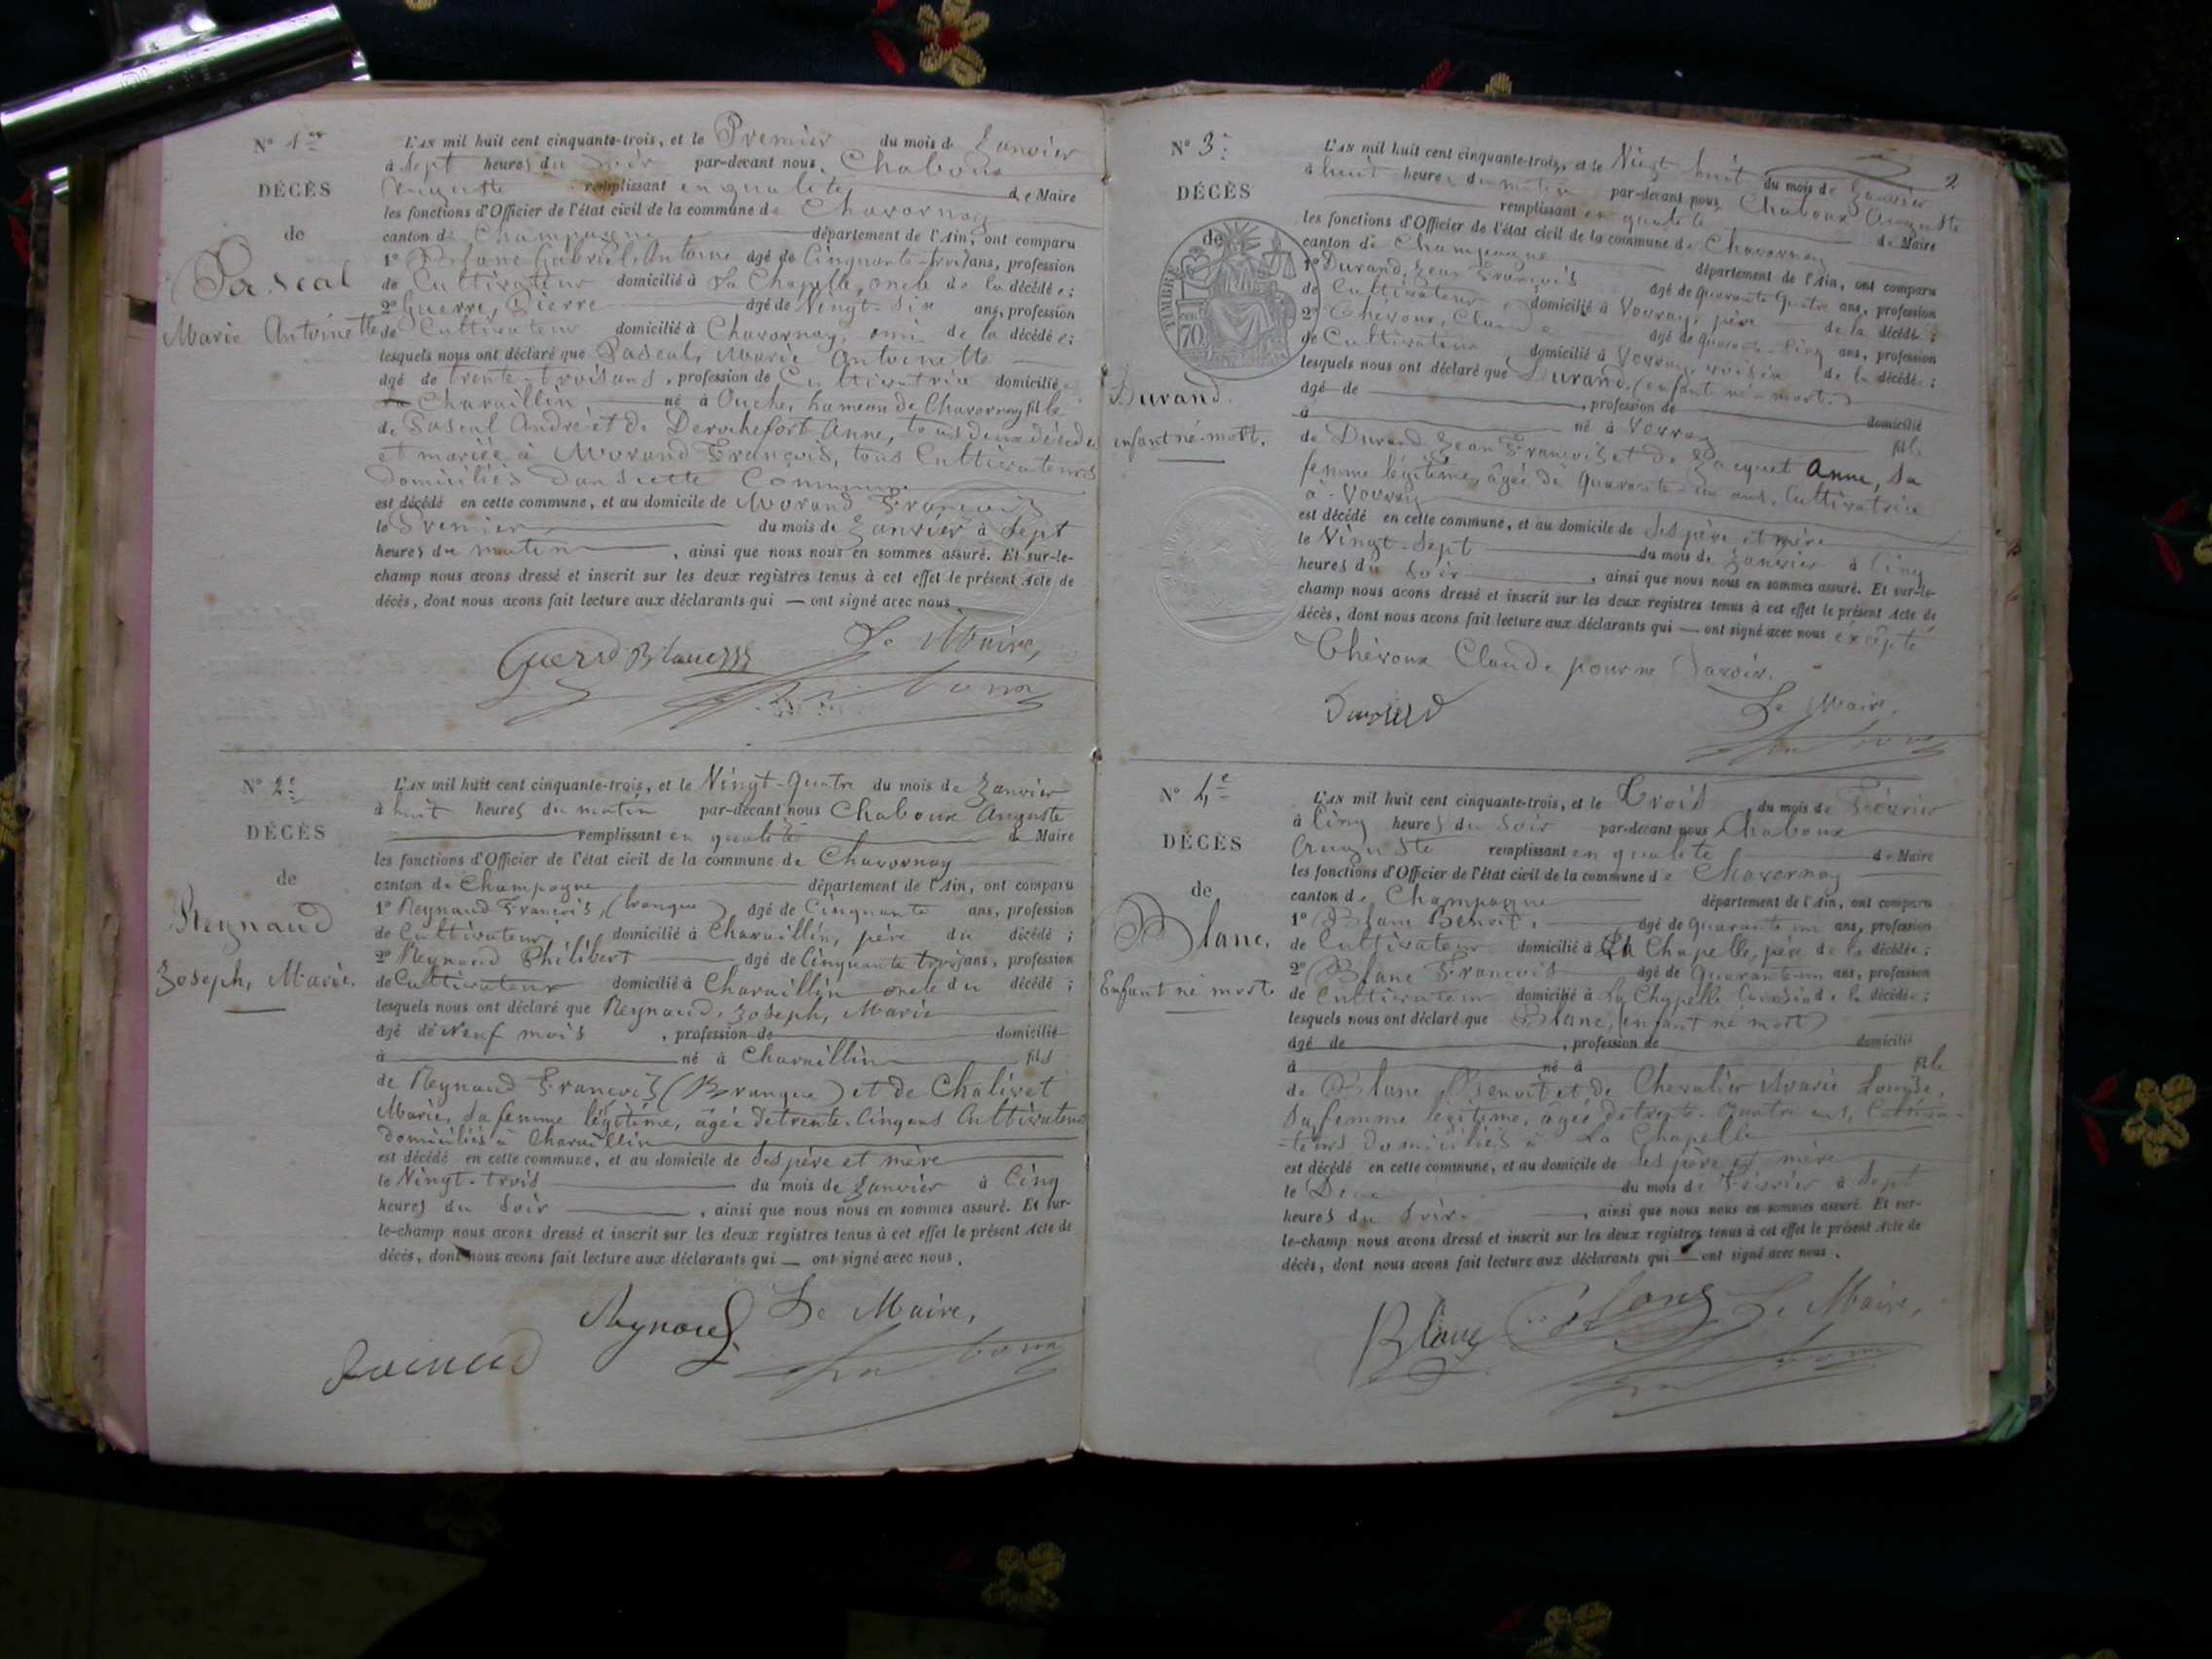 N° 1er
DÉCÈS
de
Pascal
Marie Antoinette
L'AN mil huit cent cinquante-trois, et le Premier du mois de Janvier
à Sept heures du soir par-devant nous, Chaboux
Auguste remplissant en qualité de Maire
les fonctions d'Officier de l'état civil de la commune de Chavornay
canton de Champagne département de l'Ain, ont comparu
1° Blanc Gabriel Antoine âgé de Cinquante-trois ans, profession
de Cultivateur domicilié à La Chapelle, oncle de la décédée;
2° Guerre, Pierre âgé de Vingt-Six ans, profession
de Cultivateur domicilié à Chavornay, ami de la décédée;
lesquels nous ont déclaré que Pascal, Marie Antoinette
âgé de trente-trois ans, profession de Cultivatrice domiciliée
à Charaillin né à Ouche, hameau de Chavornay fille
de Pascal André et de Derochefort Anne, tous deux décédés
et mariée à Morand François, tous Cultivateurs
domiciliés dans cette Commune
est décédé en cette commune, et au domicile de Morand François
le Premier du mois de Janvier à Sept
heures du matin, ainsi que nous nous en sommes assuré. Et sur-le-
champ nous avons dressé et inscrit sur les deux registres tenus à cet effet le présent Acte de
décès, dont nous avons fait lecture aux déclarants qui — ont signé avec nous
Le Maire,
N° 2e
DÉCÈS
de
Reynaud
Joseph, Marie.
L'AN mil huit cent cinquante-trois, et le Vingt-Quatre du mois de Janvier
à huit heures du matin par-devant nous Chaboux Auguste
remplissant en qualité de Maire
les fonctions d'Officier de l'état civil de la commune de Chavornay
canton de Champagne département de l'Ain, ont comparu
1° Reynaud François, (branque) âgé de Cinquante ans, profession
de Cultivateur, domicilié à Charaillin, père du décédé;
2° Reynaud Philibert âgé de Cinquante trois ans, profession
de Cultivateur domicilié à Charaillin oncle du décédé;
lesquels nous ont déclaré que Reynaud, Joseph, Marie
âgé de Neuf mois, profession de domicilié
à né à Charaillin fils
de Reynaud François (Branque) et de Chalivet
Marie, sa femme légitime, âgée de trente-cinq ans Cultivateurs
domiciliés à Charaillin
est décédé en cette commune, et au domicile de ses père et mère
le Vingt-trois du mois de Janvier à Cinq
heures du soir, ainsi que nous nous en sommes assuré. Et sur-
le-champ nous avons dressé et inscrit sur les deux registres tenus à cet effet le présent Acte de
décès, dont nous avons fait lecture aux déclarants qui — ont signé avec nous.
Reynaud Le Maire,
2
N° 3e
DÉCÈS
de
TIMBRE
70
Durand.
enfant né-mort.
L'AN mil huit cent cinquante-trois, et le Vingt huit du mois de Janvier
à huit heures du matin par-devant nous Chaboux Auguste
remplissant en qualité de Maire
les fonctions d'Officier de l'état civil de la commune de Chavornay
canton de Champagne département de l'Ain, ont comparu
1° Durand, Jean François âgé de quarante quatre ans, profession
de Cultivateur, domicilié à Vovray, père de la décédée;
2° Chevoux, Claude âgé de quarante-cinq ans, profession
de Cultivateur, domicilié à Vovray, voisin de la décédée;
lesquels nous ont déclaré que Durand, (enfant né-mort.)
âgé de, profession de domicilié
à né à Vovray fille
de Durand Jean François et de Jacquet Anne, sa
femme légitime, âgée de quarante-un ans, Cultivatrice
à Vovray
est décédé en cette commune, et au domicile de ses père et mère
le Vingt-Sept du mois de Janvier à Cinq
heures du soir, ainsi que nous nous en sommes assuré. Et sur-le-
champ nous avons dressé et inscrit sur les deux registres tenus à cet effet le présent Acte de
décès, dont nous avons fait lecture aux déclarants qui — ont signé avec nous éxcepté
Chevoux Claude pour ne savoir.
Durand Le Maire,
N° 4e
DÉCÈS
de
Blanc.
Enfant né mort.
L'AN mil huit cent cinquante-trois, et le Trois du mois de Février
à Cinq heures du soir par-devant nous Chaboux
Auguste remplissant en qualité de Maire
les fonctions d'Officier de l'état civil de la commune de Chavornay
canton de Champagne département de l'Ain, ont comparu
1° Blanc Benoit, âgé de quarante un ans, profession
de Cultivateur domicilié à La Chapelle, père de la décédée;
2° Blanc François âgé de quarante-un ans, profession
de Cultivateur domicilié à La Chapelle Cousin de la décédée;
lesquels nous ont déclaré que Blanc, (enfant né mort)
âgé de, profession de domicilié
à né à fille
de Blanc Benoit et de Chevalier Marie Louise,
sa femme légitime, âgée de trente-quatre ans, Cultiva-
-teurs domiciliés à La Chapelle
est décédé en cette commune, et au domicile de ses père et mère
le Deux du mois de Février à Sept
heures du soir, ainsi que nous nous en sommes assuré. Et sur-
le-champ nous avons dressé et inscrit sur les deux registres tenus à cet effet le présent Acte de
décès, dont nous avons fait lecture aux déclarants qui — ont signé avec nous.
Blanc Le Maire,